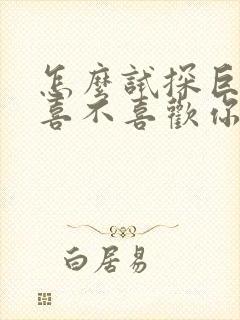 怎麼試探巨
喜不喜歡你
白居易